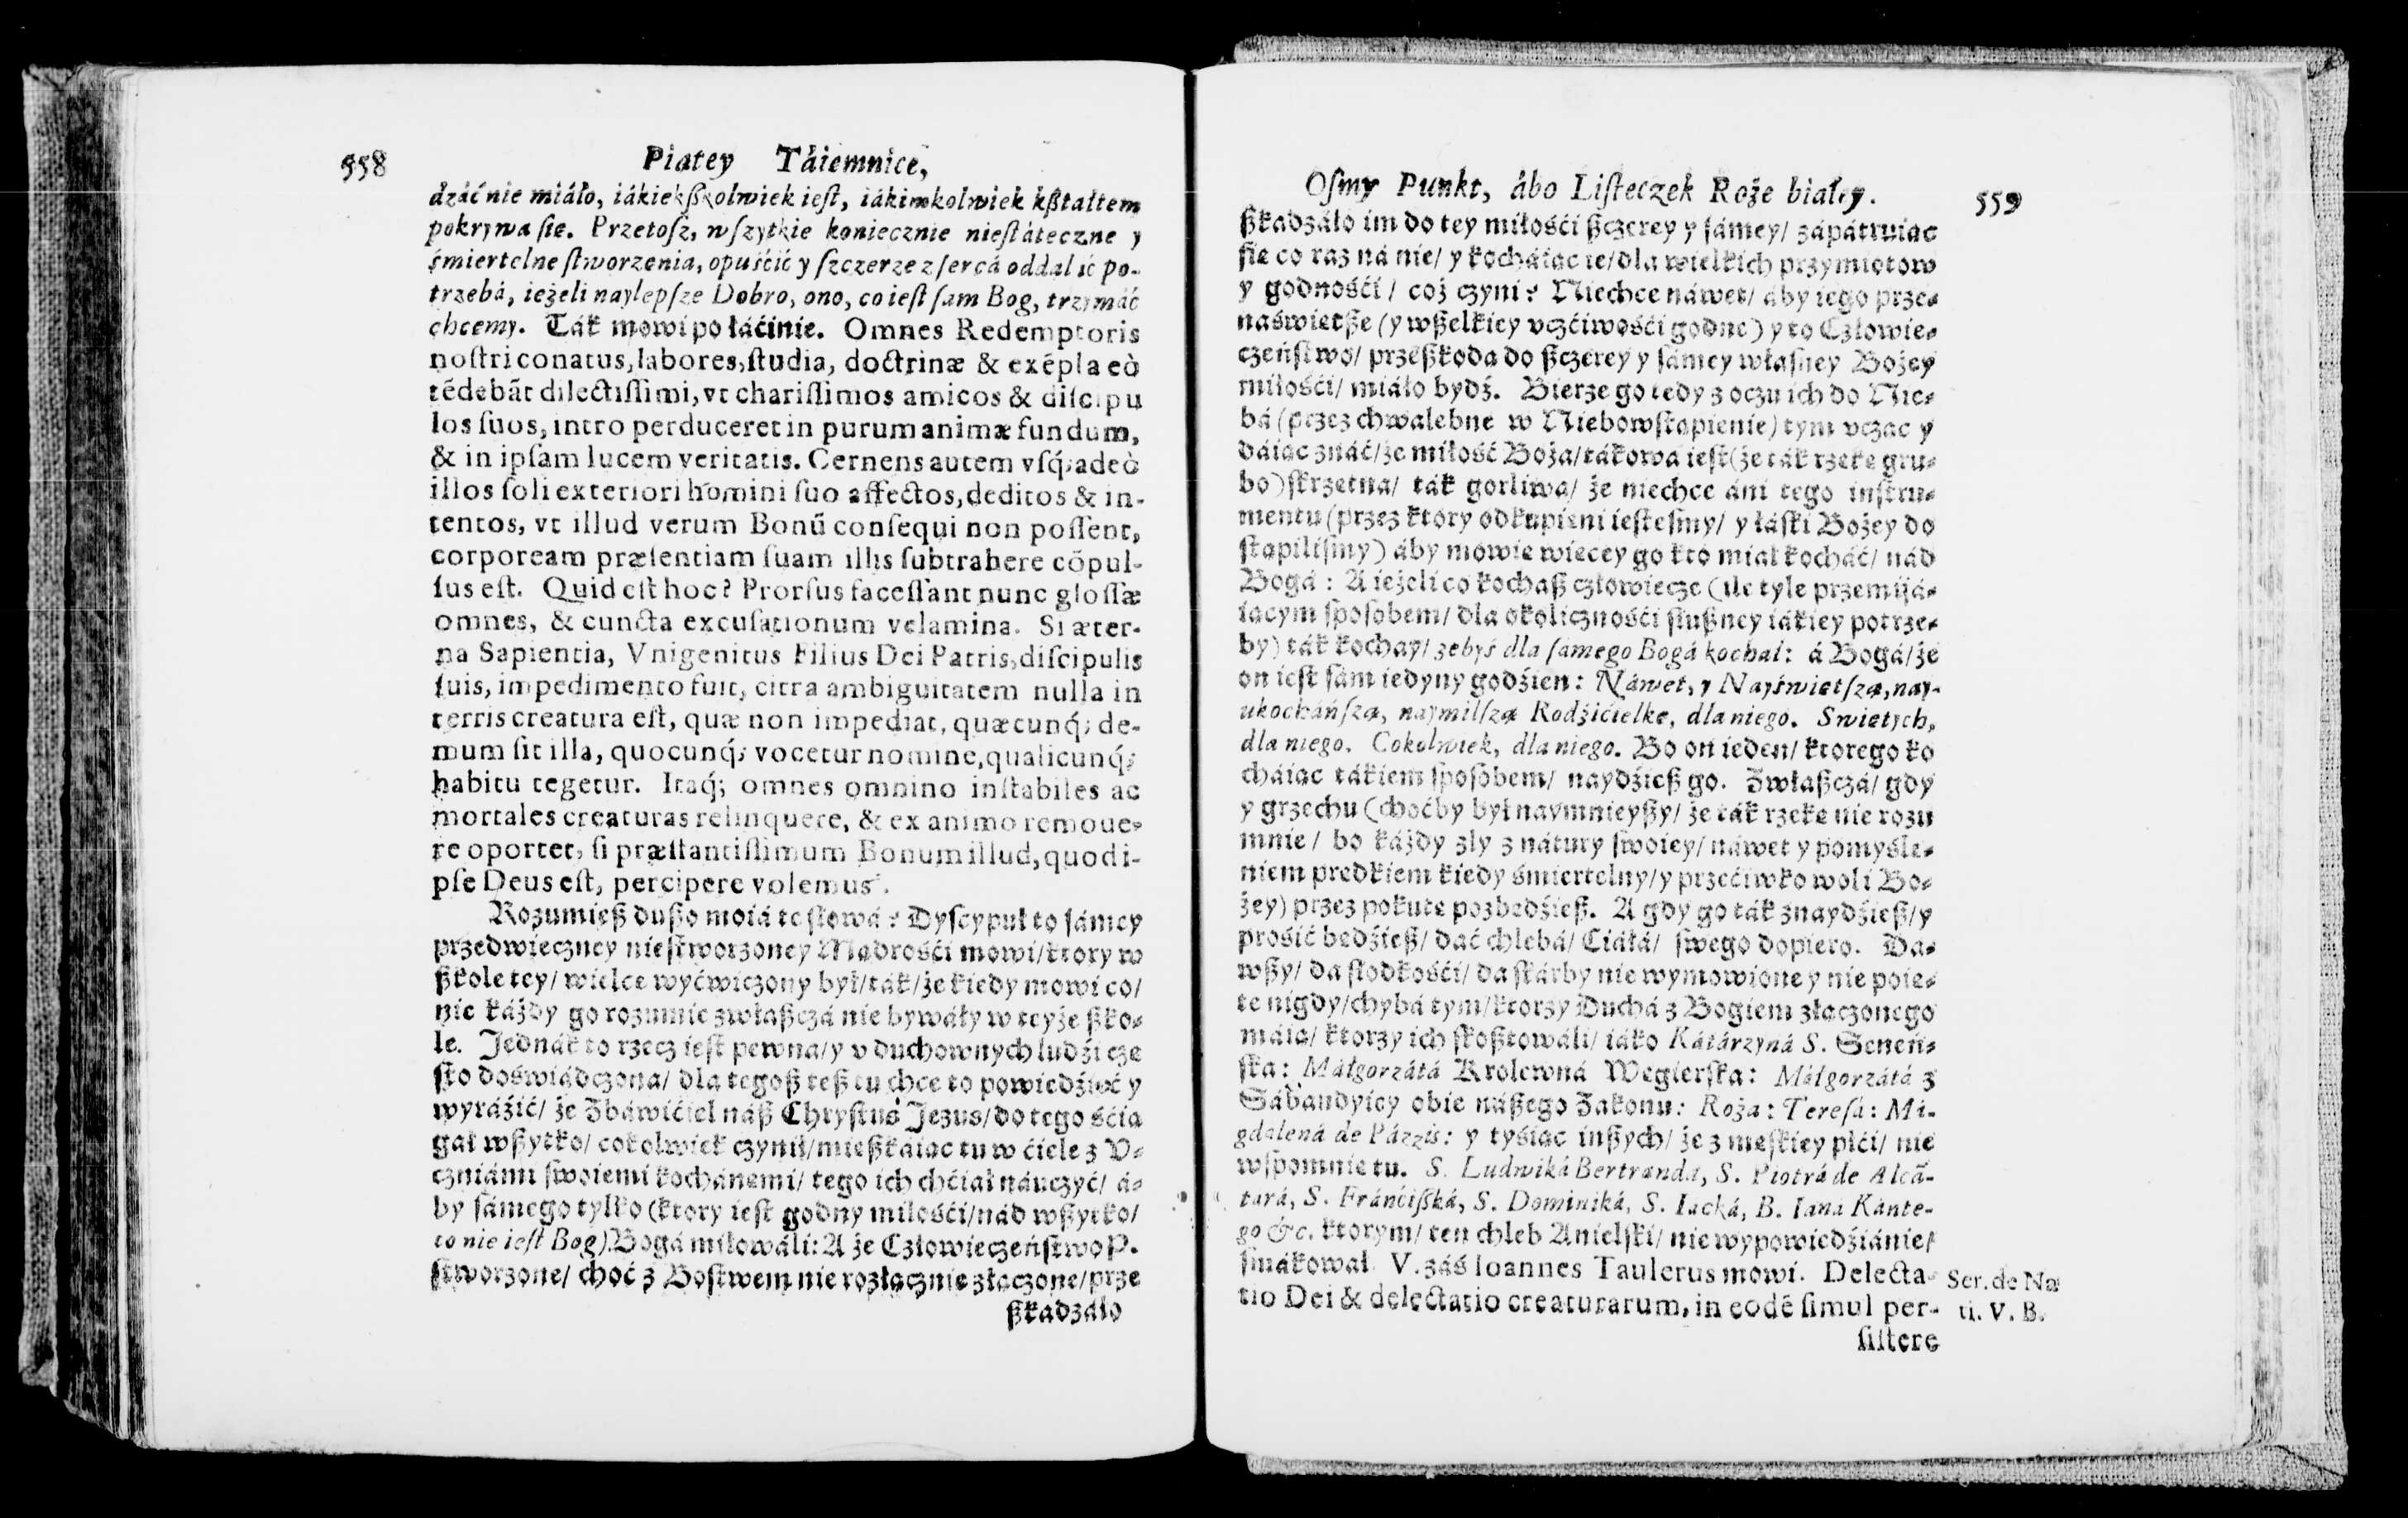 558
Piatey Táiemnice,
dzáć nie miáło, iákiekßkolwiek iest, iákimkolwiek kßtałtem
pokrywa sie. Przetoſz, wſzytkie koniecznie nieſtáteczne y
śmiertelne ſtworzenia, opuśćić y ſzczerze z ſercá oddalić po-
trzebá, ieżeli naylepſze Dobro, ono, co ieſt ſam Bog, trzymáć
chcemy. Ták mowi po łáćinie. Omnes Redemptoris
noſtri conatus, labores, ſtudia, doctrinæ & exẽpla eò
tẽdebãt dilectiſſimi, vt chariſſimos amicos & diſcipu
los ſuos, intro perduceret in purum animæ fundum,
& in ipſam lucem veritatis. Cernens autem vſq́; adeò
illos ſoli exteriori homini ſuo affectos, deditos & in-
tentos, vt illud verum Bonũ conſequi non poſſent,
corpoream præſentiam ſuam illis ſubtrahere cõpul-
ſus eſt. Quid eſt hoc? Prorſus faceſſant nunc gloſſæ
omnes, & cuncta excuſationum velamina. Si æter-
na Sapientia, Vnigenitus Filius Dei Patris, diſcipulis
ſuis, impedimento fuit, citra ambiguitatem nulla in
terris creatura eſt, quæ non impediat, quæcunq́; de-
mum ſit illa, quocunq́; vocetur nomine, qualicunq́;
habitu tegetur. Itaq́; omnes omnino inſtabiles ac
mortales creaturas relinquere, & ex animo remoue-
re oportet, ſi præſtantiſſimum Bonum illud, quod i-
pſe Deus eſt, percipere volemus.
Rozumieß dußo moiá te ſłowá? Dyſcypuł to ſámey
przedwieczney nieſtworzoney Mądrośći mowi/ ktory w
ßkole tey/ wielce wyćwiczony był/ ták/ że kiedy mowi co/
nie káżdy go rozumie zwłaßczá nie bywáły w teyże ßko-
le. Jednák to rzecz ieſt pewna/ y v duchownych ludźi czę
ſto doświádczona/ dla tegoß teß tu chce to powiedźieć y
wyráźić/ że Zbáwićiel náß Chryſtus Jezus/ do tego śćia
gał wßytko/ cokolwiek czynił/ mießkáiac tu w ćiele z V-
czniámi ſwoiemi kochánemi/ tego ich chćiał náuczyć/ á-
by ſámego tylko (ktory ieſt godny miłośći/ nád wßytko/
to nie ieſt Bog) Bogá miłowáli: A że Człowieczeńſtwo P.
ſtworzone/ choć z Boſtwem nie rozłącznie złączone/ prze
ßkadzáło
Oſmy Punkt, ábo Liſteczek Roże białey.
559
ßkadzáło im do tey miłośći ßczerey y ſámey/ zápátruiac
ſie co raz ná nie/ y kocháiac ie/ dla wielkich przymiotow
y godnośći/ coż czyni? Niechce náwet/ áby iego prze-
naświetße (y wßelkiey vczćiwośći godne) y to Człowie-
czeńſtwo/ przeßkoda do ßczerey y ſámey właſney Bożey
miłośći/ miáło bydź. Bierze go tedy z oczu ich do Nie-
bá (przez chwalebne w Niebowſtąpienie) tym vcząc y
dáiąc znáć/ że miłość Boża/ tákowa ieſt (że ták rzekę gru-
bo) ſkrzętna/ ták gorliwa/ że niechce áni tego inſtru-
mentu (przez ktory odkupieni ieſteſmy/ y łáſki Bożey do
ſtąpiliſmy) áby mowię więcey go kto miał kocháć/ nád
Bogá: A ieżeli co kochaß człowiecze (ile tyle przemijá-
iącym ſpoſobem/ dla okolicznośći ſłußney iákiey potrze-
by) ták kochay/ zebyś dla ſamego Bogá kochał: á Bogá/ że
on ieſt ſam iedyny godźien: Náwet, y Nayświetſzą, nay-
ukocháńſzą, naymilſzą Rodźićielke, dla niego. Swietych,
dla niego. Cokolwiek, dla niego. Bo on ieden/ ktorego ko
cháiac tákiem ſpoſobem/ naydźieß go. Zwłaßczá/ gdy
y grzechu (choćby był naymnieyßy/ że ták rzekę nie rozu
mnie/ bo káżdy zły z nátury ſwoiey/ náwet y pomyśle-
niem prędkiem kiedy śmiertelny/ y przećiwko woli Bo-
żey) przez pokutę pozbędźieß. A gdy go ták znaydźieß/ y
prośić będźieß/ dáć chlebá/ Ciáłá/ ſwego dopiero. Da-
wßy/ da ſłodkośći/ da ſkárby nie wymowione y nie poię-
te nigdy/ chybá tym/ ktorzy Duchá z Bogiem złączonego
máią/ ktorzy ich ſkoßtowáli/ iáko Kátárzyná S. Seneń-
ſka: Małgorzátá Krolewná Węgierſka: Małgorzátá z
Sábaudyiey obie náßego Zakonu: Roża: Tereſá: Mi-
gdalená de Pázzis: y tyśiąc inßych/ że z męſkiey płći/ nie
wſpomnię tu. S. Ludwiká Bertrandá, S. Piotrá de Alcã-
tará, S. Fránćiſſká, S. Dominiká, S. Iacká, B. Iana Kánte-
go &c. ktorym/ ten chleb Anielſki/ nie wypowiedźiánie/
ſmákował. V. záś Ioannes Taulerus mowi. Delecta-
tio Dei & delectatio creaturarum, in eodẽ ſimul per-
ſiſtere
Ser. de Na
ti. V. B.